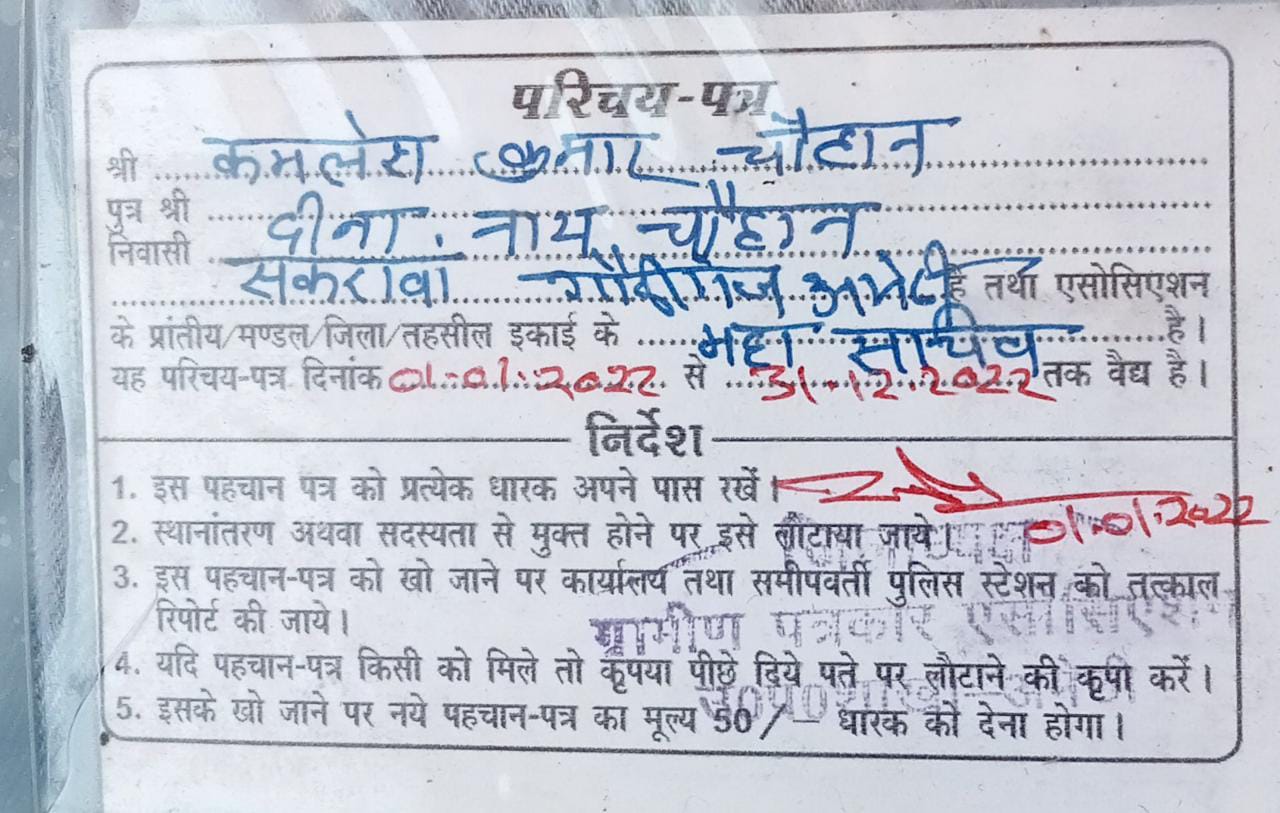 परिचय-पत्र
श्री कमलेश कुमार चौहान
पुत्र श्री दीना नाथ चौहान
निवासी
सकरावा गौरीगंज अमेठी है तथा एसोसिएशन
के प्रांतीय/मण्डल/जिला/तहसील इकाई के महा सचिव है।
यह परिचय-पत्र दिनांक 01.01.2022 से 31.12.2022 तक वैद्य है।
निर्देश
1. इस पहचान पत्र को प्रत्येक धारक अपने पास रखें।
01.01.2022
2. स्थानांतरण अथवा सदस्यता से मुक्त होने पर इसे लौटाया जाये।
3. इस पहचान-पत्र को खो जाने पर कार्यालय तथा समीपवर्ती पुलिस स्टेशन को तत्काल
रिपोर्ट की जाये।
ग्रामीण पत्रकार एसोसिएशन
4. यदि पहचान-पत्र किसी को मिले तो कृपया पीछे दिये पते पर लौटाने की कृपा करें।
5. इसके खो जाने पर नये पहचान-पत्र का मूल्य 50/- धारक को देना होगा।